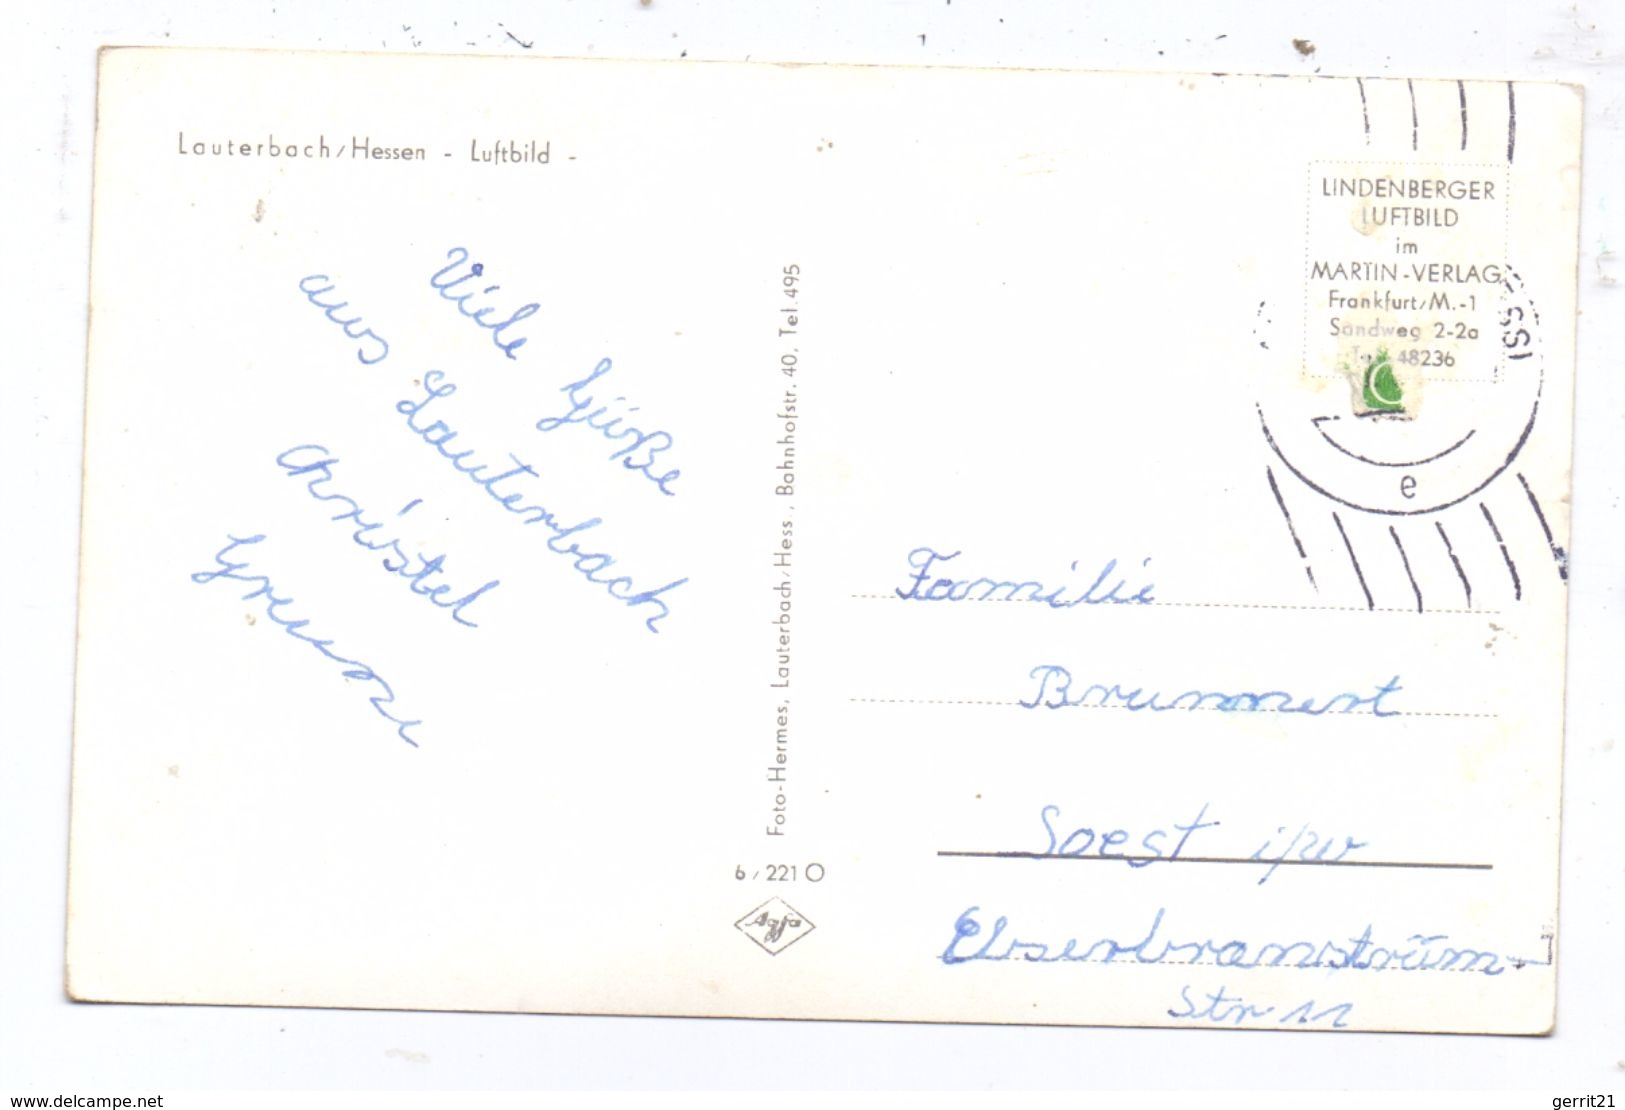 Lauterbach/Hessen - Luftbild -
Viele Grüße
aus Lauterbach
Christel
LINDENBERGER
LUFTBILD
im
MARTIN-VERLAG
Frankfurt/M.-1
Sandweg 2-2a
Tel. 48236
e
Foto-Hermes, Lauterbach/Hess., Bahnhofstr. 40, Tel. 495
6/221 O
Agfa
Familie
Brummert
Soest i/w
Elsenbranström-
Str 11
www.delcampe.net
gerrit21